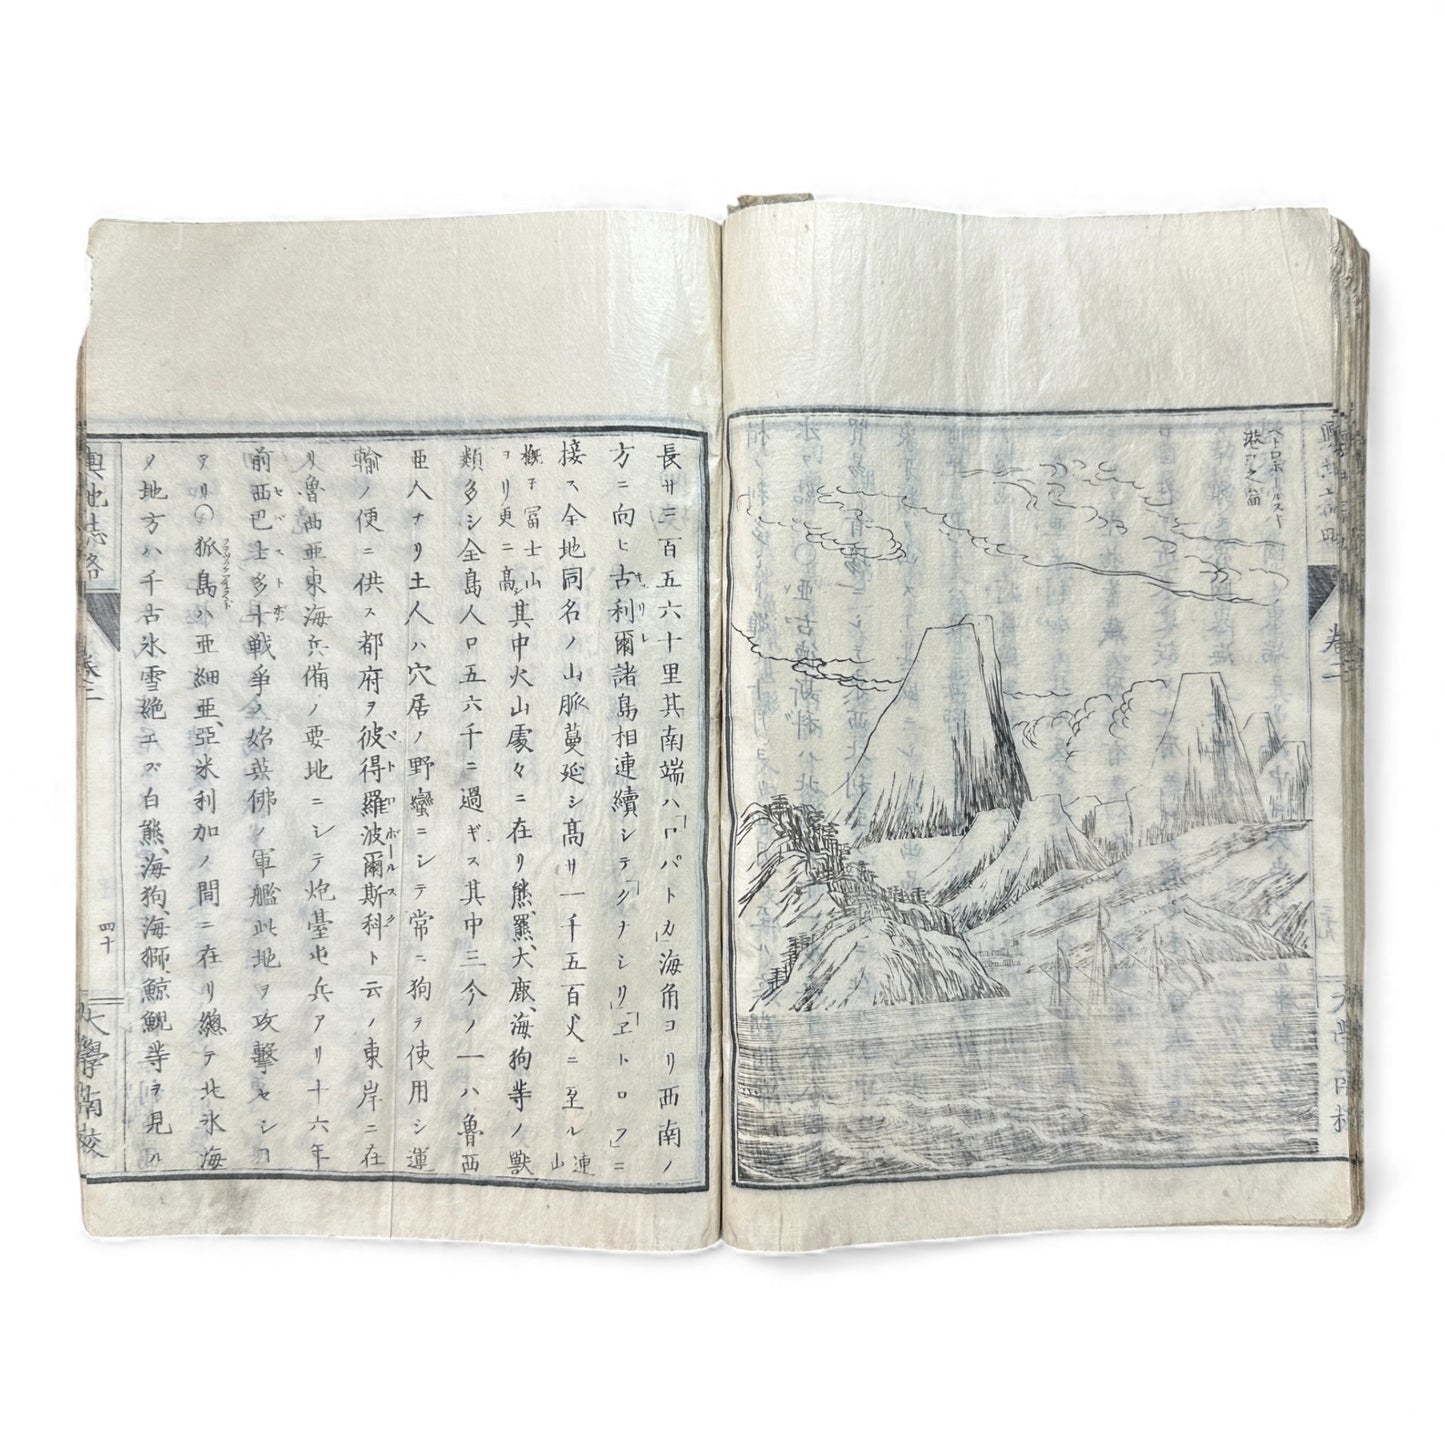 ペトロポールスキ
港口之畄
輿地志略
卷二
大學南校
長サ三百五六十里其南端ハ「ロパトカ」海角ヨリ西南ノ
方ニ向ヒ古利爾諸島相連續シテ「クナシリ」「ヱトロフ」ニ
接ス全地同名ノ山脈蔓延シ高サ一千五百丈ニ至ル連山
概子冨士山ヨリ更ニ高シ其中火山處々ニ在リ熊、羆、大鹿、海狗等ノ獸
類多シ全島人口五六千ニ過ギス其中三今ノ一ハ魯西
亜人ナリ土人ハ穴居ノ野蠻ニシテ常ニ狗ヲ使用シ運
輸ノ便ニ供ス都府ヲ彼得羅波爾斯科ト云ノ東岸ニ在
リ魯西亜東海兵備ノ要地ニシテ炮臺屯兵アリ十六年
前西巴士多卜戰爭ノ始英佛ノ軍艦此地ヲ攻擊セシヿ
アリ〇狐島ハ亜細亜、亞米利加ノ間ニ在リ總テ北氷海
ノ地方ハ千古氷雪絶エズ白熊、海狗、海獅、鯨鯢等ヲ見ル
輿地志略
卷二
四十
大學南校